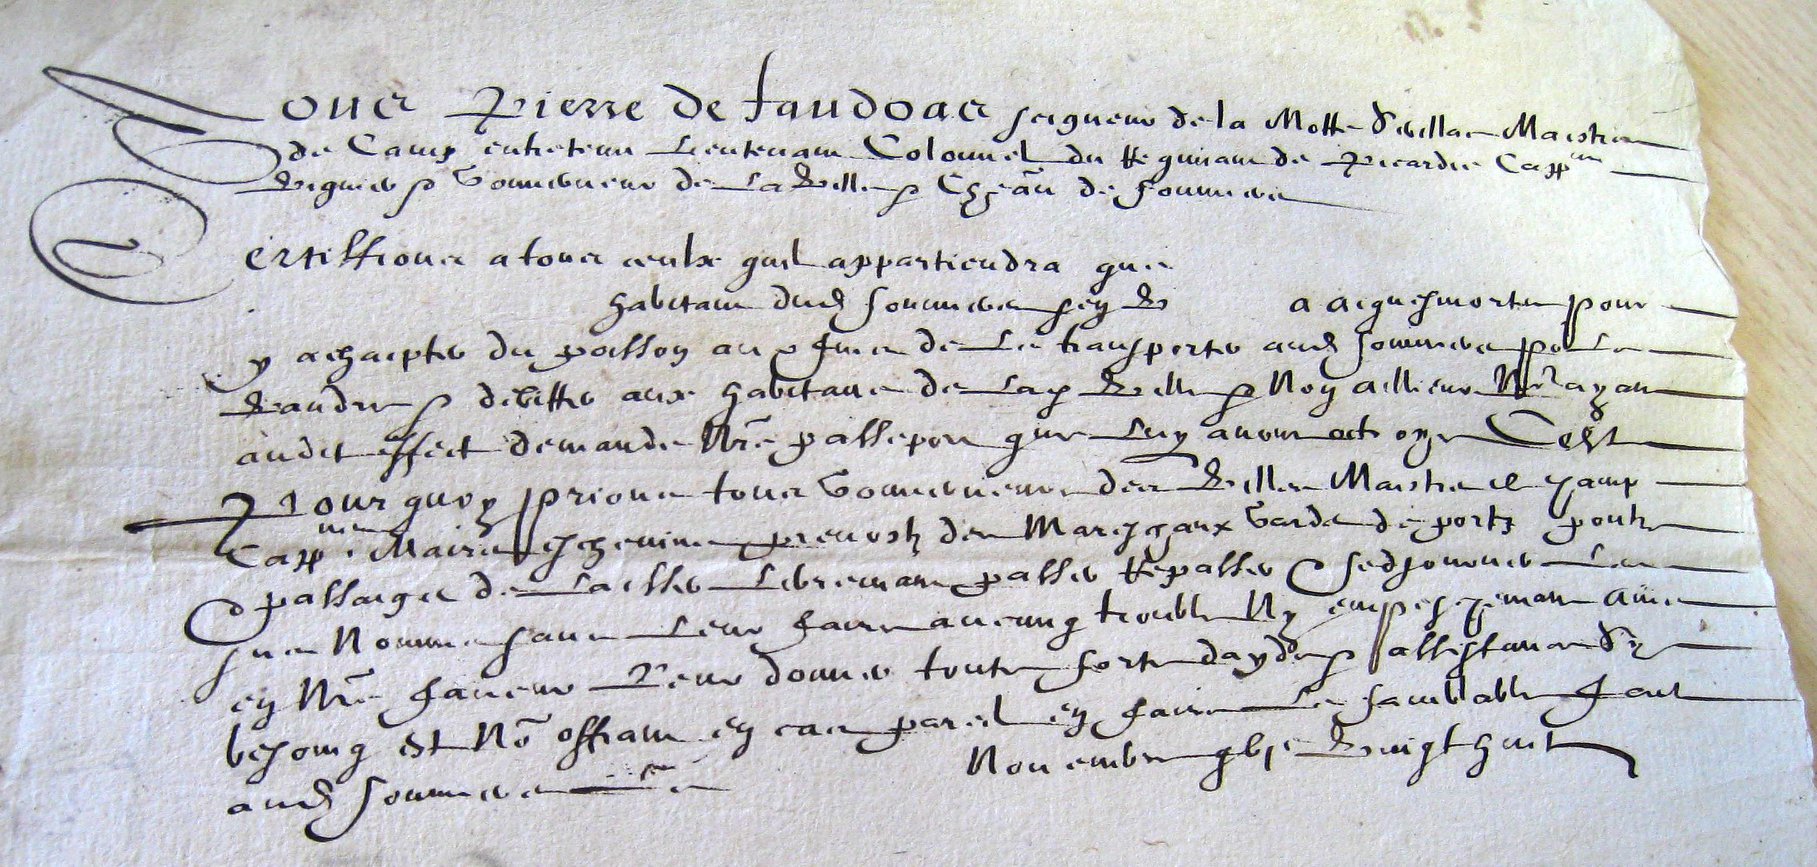 Nous Pierre de Faudoas seigneur de la Motte Maistre
de Camp entretenu Lieutenant Colonnel du Regiment de Picardie Capp.ne
Viguier & Gouverneur de La Ville & Ch.eau de Sommieres
Certiffions a tous ceulx quil appartiendra que
habitant dud Sommieres sen va a aiguesmortes pour
y achaepter du poisson aux fins de Le transporter aud Sommieres po.r Le
Vandre & debitter aux habitans de Lad Ville & Non allieurs N.s ayant
audit effect demandé N.re passeport que Luy avons octroye C'est
Pourquoy prions tous Gouverneurs des Villes Maistres de Camp
Capp.nes Maires Eschevins prevostz des Mareschaux Gardes de portz pontz
& passaiges de Laisser Librement passer Repasser & sedjourner Les
sus Nommes sans Leur faire aucung trouble Ny empeschement Ains
en N.re faveur Leur donner toute sorte dayde & assistance Sy
besoing est No.s offrant en cas pareil en faire Le samblable fait
aud Sommieres Le Novembre gbje Vingt huit